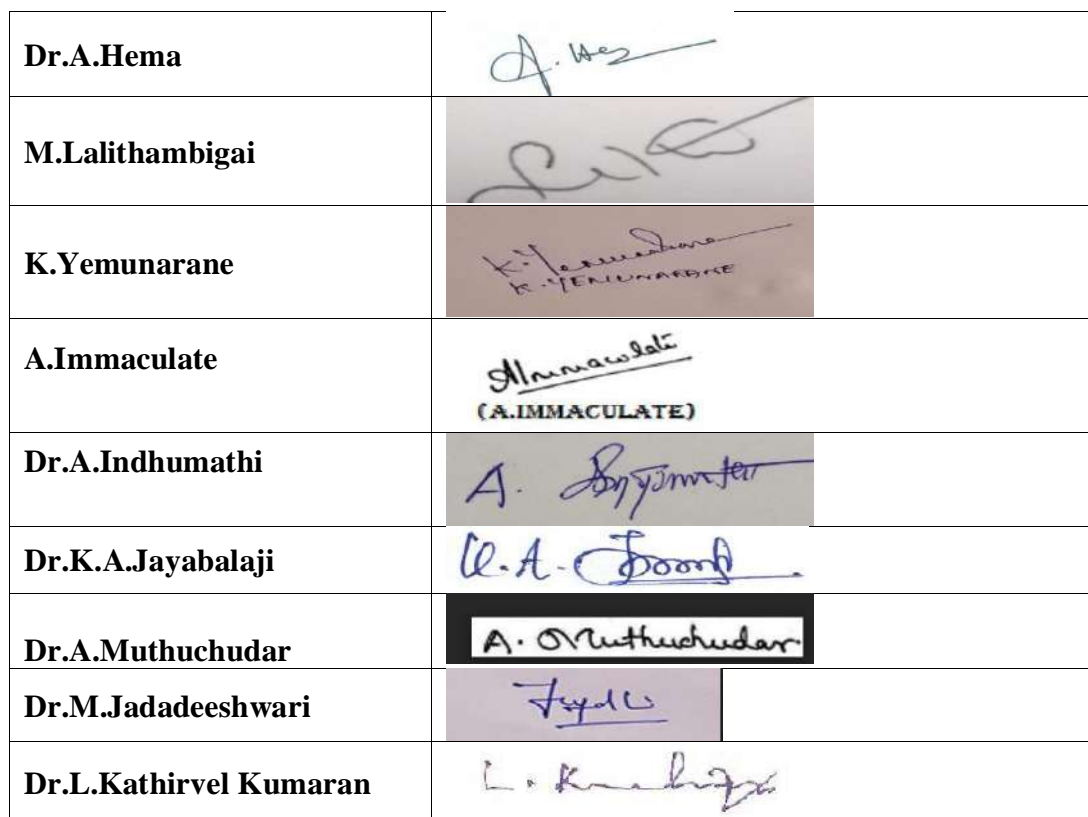 Dr.A.Hema
A. Hem
M.Lalithambigai
K.Yemunarane
K.Yemunarane
K.YEMUNARANE
A.Immaculate
AImmaculate
(A.IMMACULATE)
Dr.A.Indhumathi
A.
Dr.K.A.Jayabalaji
K.A.
Dr.A.Muthuchudar
A. Muthuchudar
Dr.M.Jadadeeshwari
Dr.L.Kathirvel Kumaran
L.